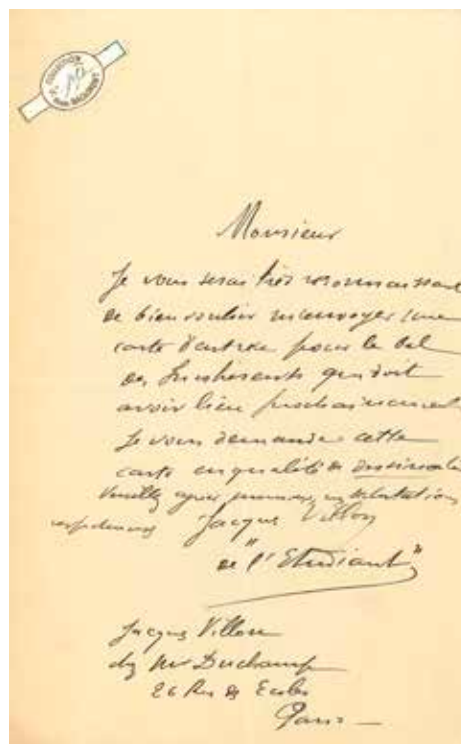 COLLECTION
Monsieur
Je vous serais très reconnaissant
de bien vouloir m'envoyer une
carte d'entrée pour le bal
des Incohérents qui doit
avoir lieu prochainement
Je vous demande cette
carte en qualité de dessinateur
Veuillez agréer monsieur, mes salutations
Jacques Villon
de "l'Etudiant"
Jacques Villon
chez Mr Duchamp
26 Rue des Ecoles
Paris